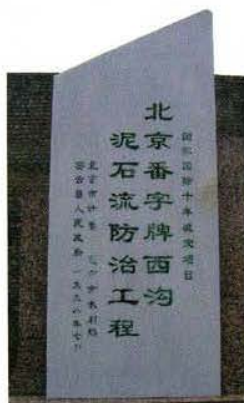 国际减灾十年减灾项目
北京番字牌西沟
泥石流防治工程
北京市计委
密云县人民政府 一九九八年七月